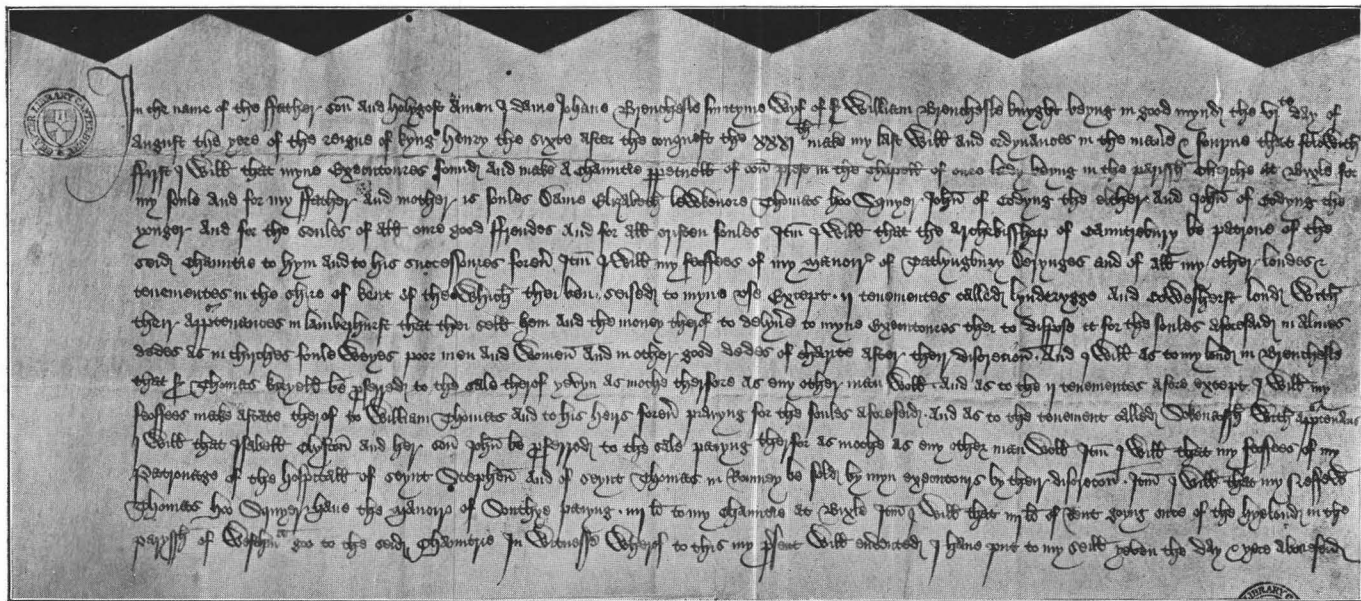 In the name of the ffather son And holygost Amen I dame Johane Brenchesle suntyme Wyf of sr William Brenchesle knyght beyng in good mynde the vjte day of
August the yere of the reigne of kyng henry the sixte after the conquest the xxxjth make my last Will and ordynances in the maner & fourme that folwith
ffyrst I Will that myne Executoures founde And make A Chauntrie ppetuell of oon prest in the chapell of oure lady beyng in the parissh Chirche at Bixle for
my soule and for my ffather And mother is soules Dame Elizabeth lewkenore Thomas hoo Squyer John of Godyng the elther And John of Godyng the
yonger And for the soules of all oure good ffrendes And for all cristen soules Itm I Will that the Archebisshop of Cauntrebury be patrone of the
seid Chauntrie to hym and to his successoures foreu Itm I Will my feoffees of my Manoirs of Patlyngbury Derynges and of all my other londes &
tenementes in the shire of kent of the Which ther ben seised to myne vse Except ij tenementes called lynderygge And Cowesherst lond With
their apptenances in lamberhurst that ther sell hem And the money therof to delyue to myne Executoures ther to dispose it for the soules aforeseid in almes
dedes as in chirches foule Weyes poor men And Women And in other good dedes of charite after their discrecioun And I Will as to my lond in Brenchesle
that sr Thomas be pferred to the sale therof yevyn as moche therfore as eny other man Woll And as to the ij tenementes afore except I Will my
feoffees make astate therof to William Thomas And to his heirs foreu praying for the soules aforeseid And as to the tenement called With apptenance
I Will that Isabell Clyfton And her son John be pferred to the sale paying therfor as moche as eny other man Woll Itm I Will that my feoffees of my
Patronage of the hospitall of seynt Stephen And of seynt Thomas in Romney be sold by myn executours by their discrecion Itm I Will that my
Thomas hoo Squyer haue the Manoir of paying iiij li to my Chauntrie at Bixle Itm I Will that iiij li of Rent going oute of the hyelond in the
paryssh of goo to the seid Chauntrie In Witnesse Wherof to this my psent Will endented I haue put to my seall yeven the day & yere aboveseid